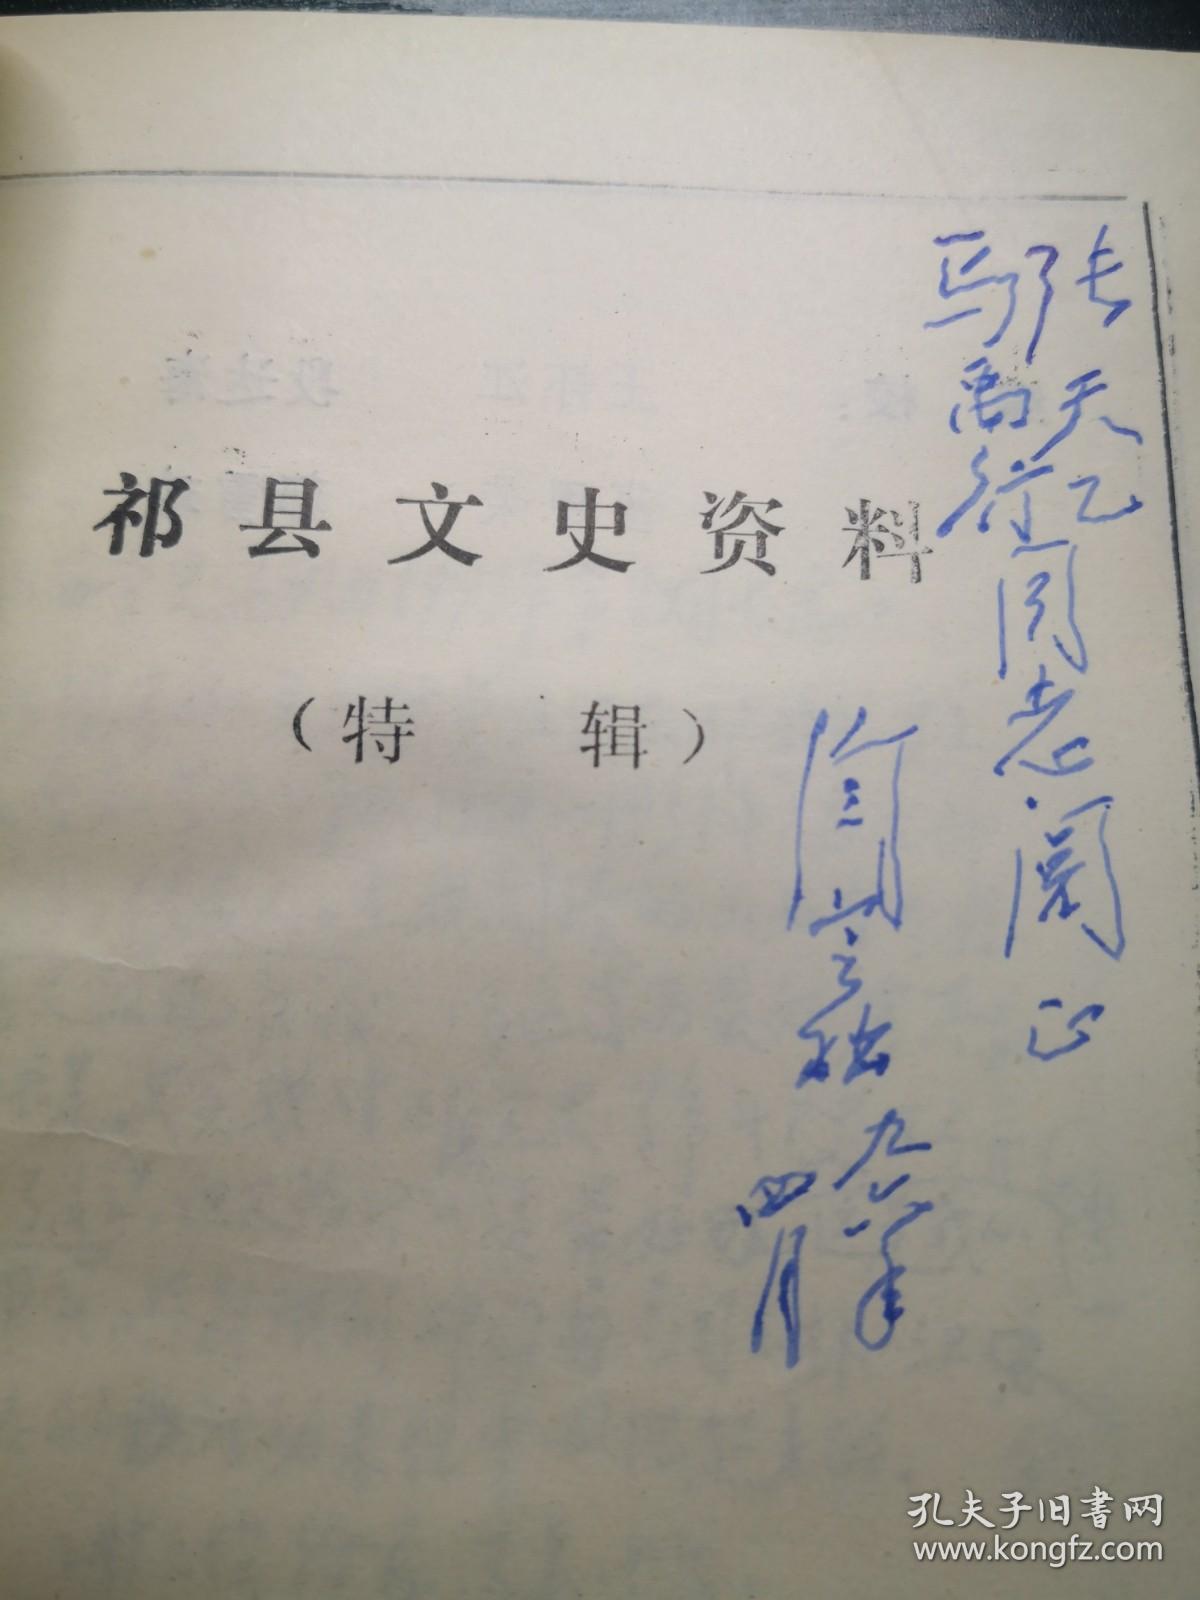 祁县文史资料
（特　辑）
张天乙
马禹行
同志阅正
阎
九六年
四月
孔夫子旧书网
www.kongfz.com